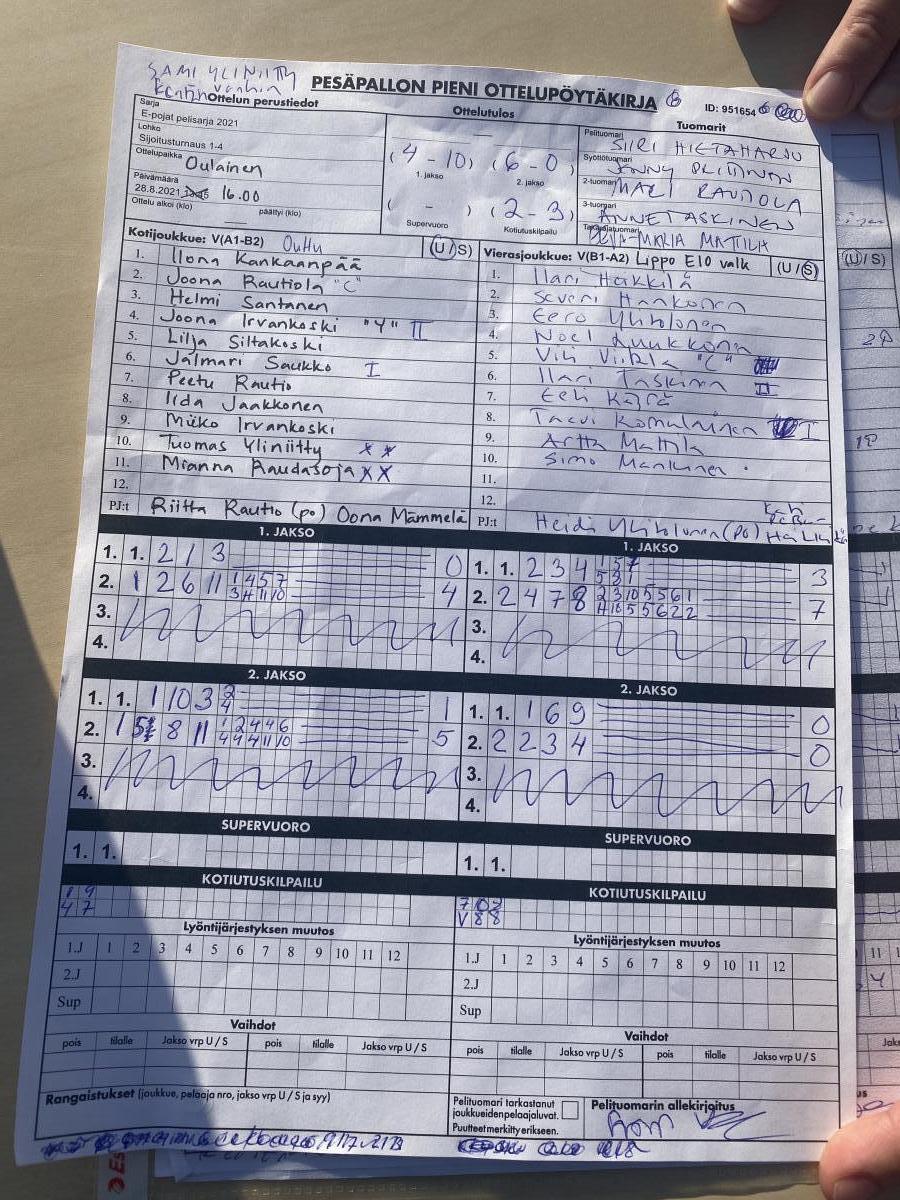 SAMI YLINIITTY
Kentän vanhin
PESÄPALLON PIENI OTTELUPÖYTÄKIRJA
ID: 951654
Ottelun perustiedot
Ottelutulos
Tuomarit
Sarja
E-pojat pelisarja 2021
Lohko
Sijoitusturnaus 1-4
Ottelupaikka Oulainen
Päivämäärä
28.8.2021 16.00
Ottelu alkoi (klo) päättyi (klo)
(4-10) (6-0)
1. jakso 2. jakso
( - ) (2-3)
Supervuoro Kotiutuskilpailu
Pelituomari SIIRI HIETAHARJU
Syöttötuomari
2-tuomari MARI RAUTIOLA
3-tuomari ANNE TASKINEN
Takarajatuomari MARIA MATTILA
Kotijoukkue: V(A1-B2) OuHu (U/S)
1. Ilona Kankaanpää
2. Joona Rautiola "C"
3. Helmi Santanen
4. Joona Irvankoski "V" II
5. Lilja Siltakoski
6. Jalmari Saukko I
7. Peetu Rautio
8. Iida Jaakkonen
9. Miiko Irvankoski
10. Tuomas Yliniitty x x
11. Mianna Raudasoja x x
12.
PJ:t Riitta Rautio (po) Oona Mämmelä
Vierasjoukkue: V(B1-A2) Lippo E10 valk (U/S)
1. Ilari Heikkilä
2. Severi Hankonen
3. Eero Ylikolonen
4. Noel Luukkonen
5. "C"
6. Ilari Taskinen II
7. Eeli Kärä
8. Taavi Komulainen I
9. Arttu Mattila
10. Simo Mankinen
11.
12.
PJ:t Heidi (po)
1. JAKSO
1. 1. 2 1 3 0
2. 1 2 6 11 1 4 5 7 4
3 4 11 10
3.
4.
1. JAKSO
1. 1. 2 3 4 1 5 7 3
5 3 1
2. 2 4 7 8 2 3 10 5 5 6 1 7
4 10 5 5 6 2 2
3.
4.
2. JAKSO
1. 1. 1 10 3 2 1
4
2. 1 5 8 11 1 2 4 4 6 5
4 4 4 11 10
3.
4.
2. JAKSO
1. 1. 1 6 9 0
2. 2 2 3 4 0
3.
4.
SUPERVUORO
1. 1.
SUPERVUORO
1. 1.
KOTIUTUSKILPAILU
1 9
4 7
KOTIUTUSKILPAILU
7 10 2
V 8 8
Lyöntijärjestyksen muutos
1.J 1 2 3 4 5 6 7 8 9 10 11 12
2.J
Sup
Lyöntijärjestyksen muutos
1.J 1 2 3 4 5 6 7 8 9 10 11 12
2.J
Sup
Vaihdot
pois tilalle Jakso vrp U / S pois tilalle Jakso vrp U / S
Vaihdot
pois tilalle Jakso vrp U / S pois tilalle Jakso vrp U / S
Rangaistukset (joukkue, pelaaja nro, jakso vrp U / S ja syy)
Pelituomari tarkastanut
joukkueidenpelaajaluvat.
Puutteet merkitty erikseen.
Pelituomarin allekirjoitus